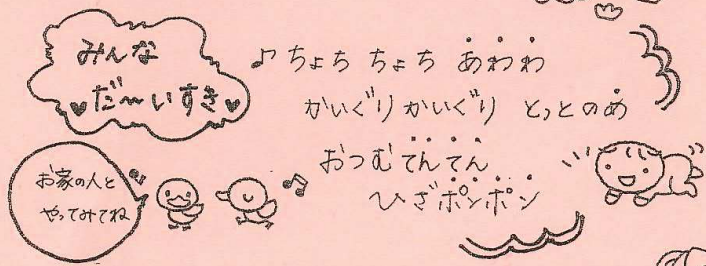 みんな
だ〜いすき
♪ちょち ちょち あわわ
かいぐりかいぐり とっとのめ
おつむてんてん
ひざポンポン
お家の人と
やってみてね